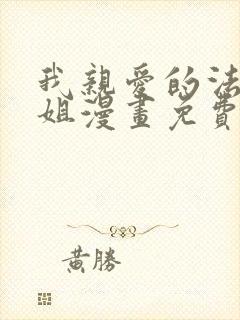 我親愛的法
姐漫畫免費
黃勝